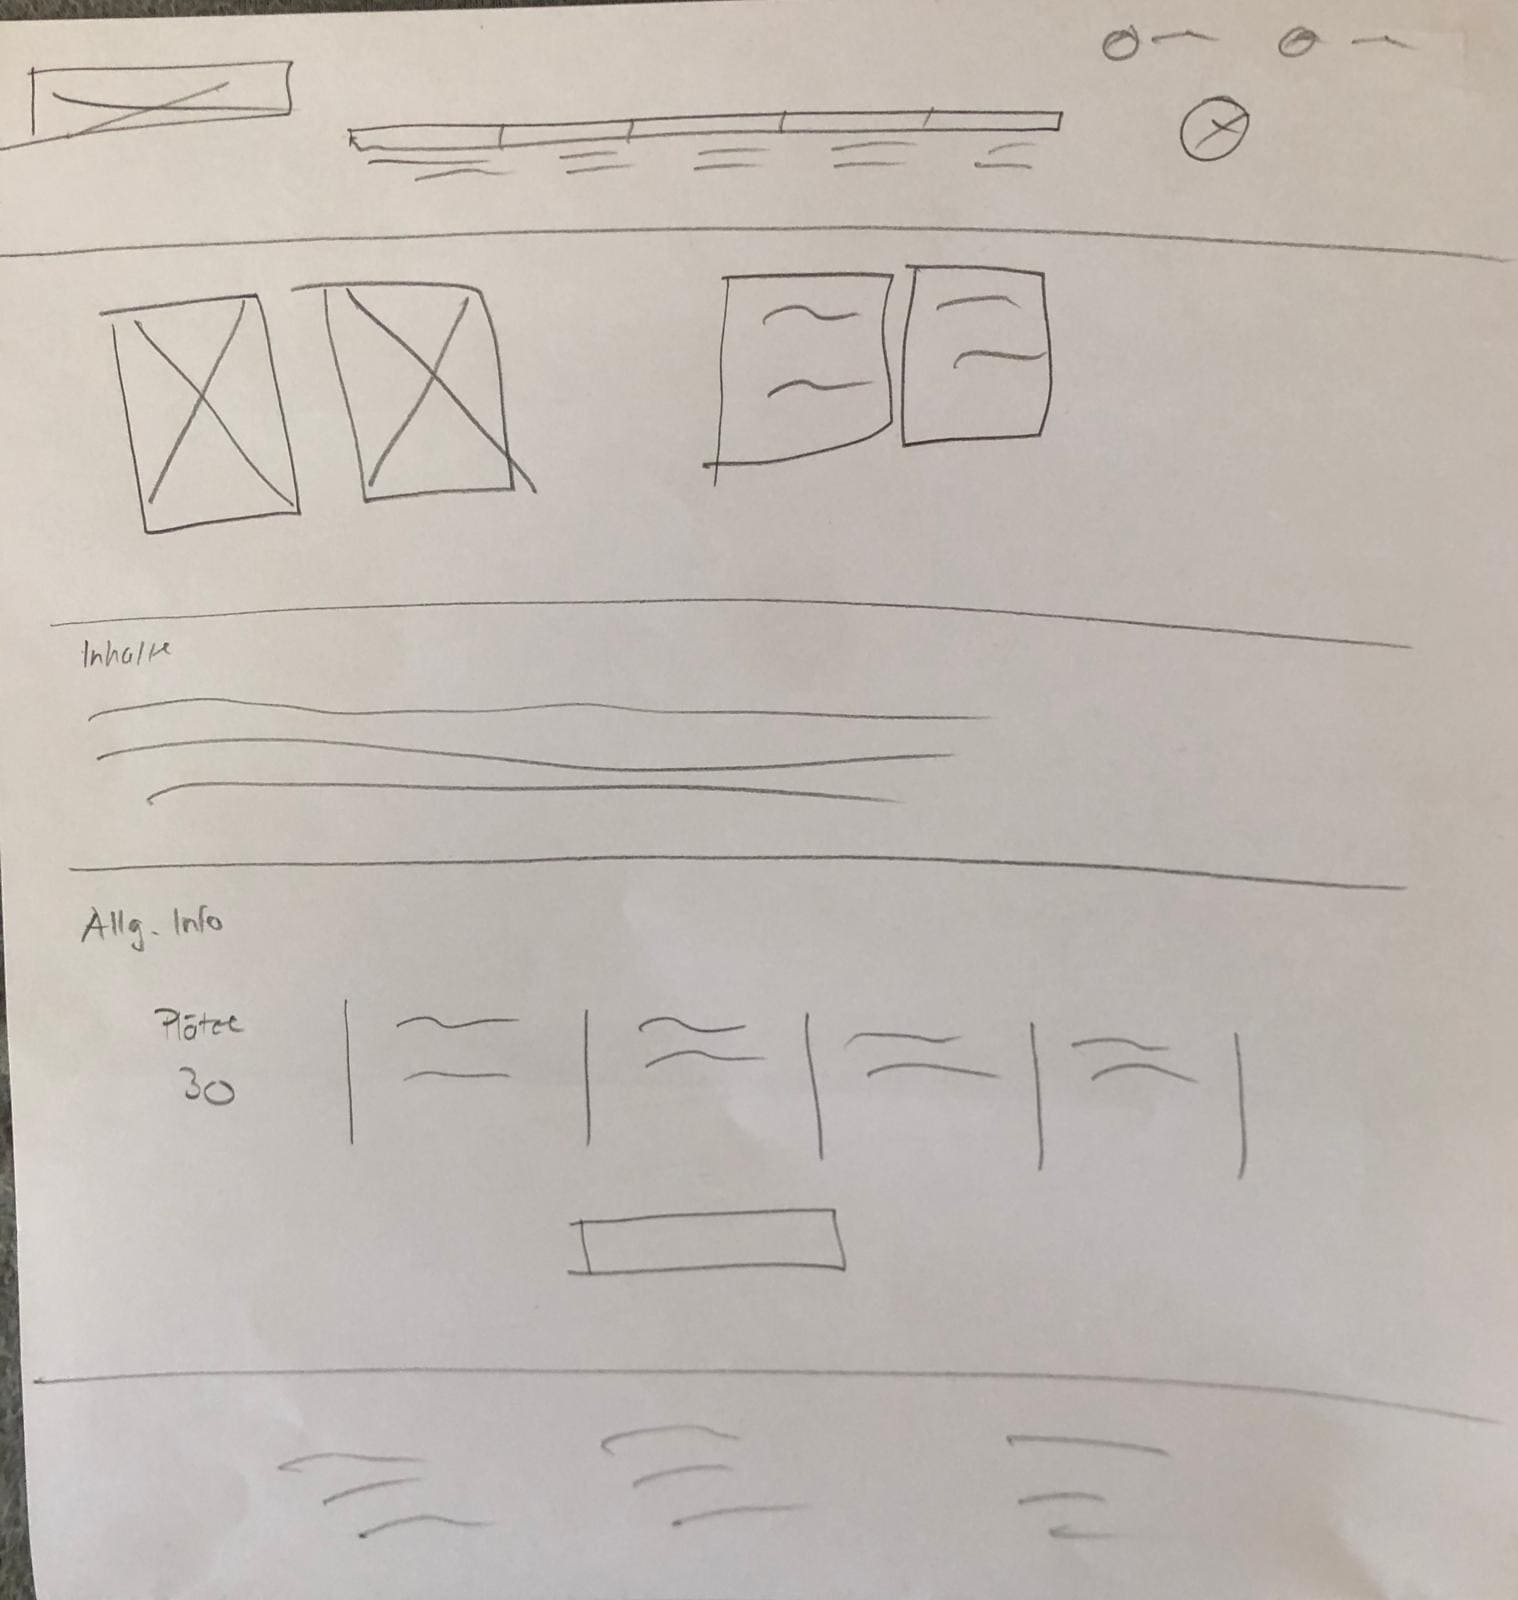 Inhalte
Allg. Info
Plätze
30